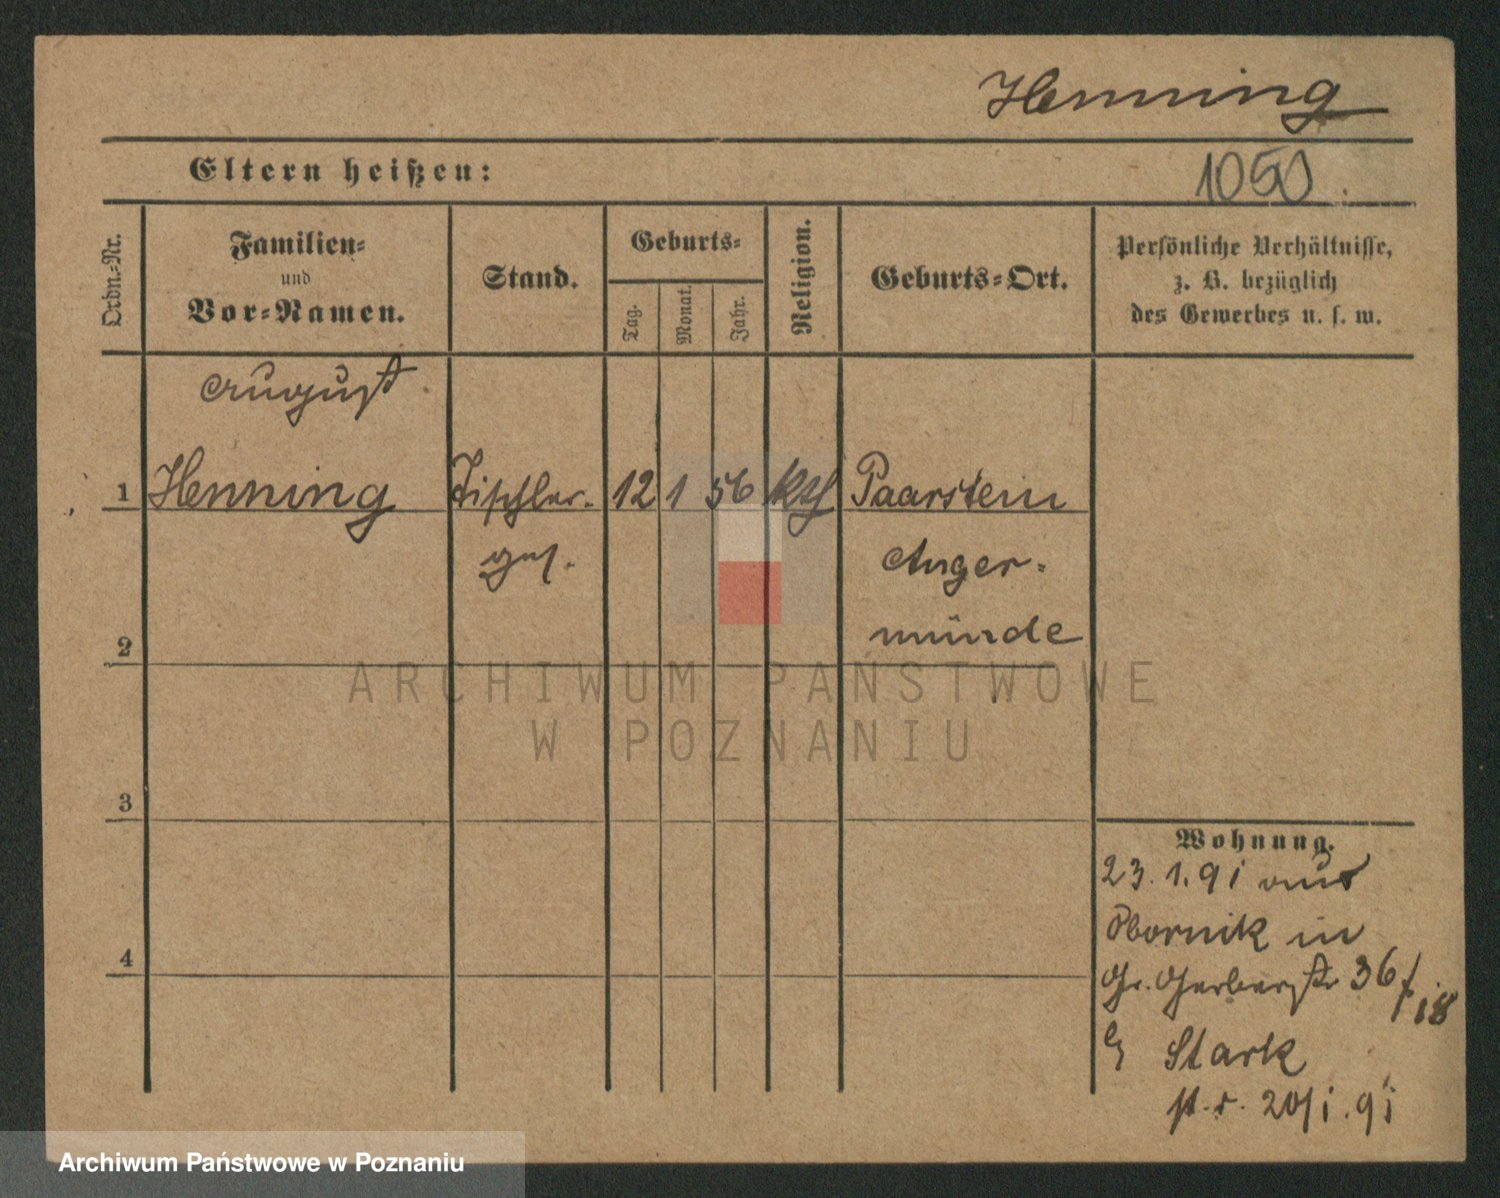 Henning
Eltern heißen:
1050
Ordn.-Nr.
Familien-
und
Vor-Namen.
Stand.
Geburts-
Tag.
Monat.
Jahr.
Religion.
Geburts-Ort.
Persönliche Verhältnisse,
z. B. bezüglich
des Gewerbes u. s. w.
August
1 Henning Tischler- 12 1 56 kth Paarstein
ges. Anger-
2 münde
ARCHIWUM PAŃSTWOWE
W POZNANIU
3
Wohnung.
23.1.91 aus
Obornik in
4
Gr. Gerberstr 36
Stark
20/1.91
Archiwum Państwowe w Poznaniu